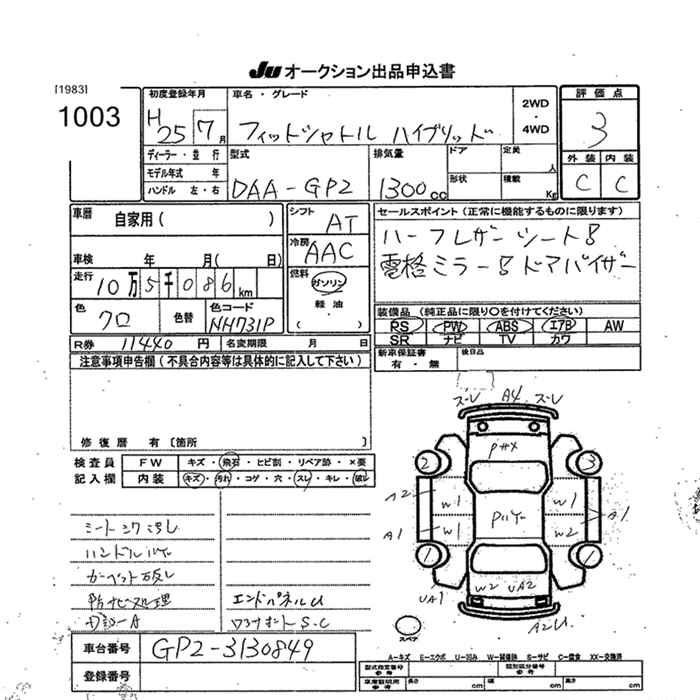 JU オークション出品申込書
[1983]
1003
初度登録年月
H 25 7月
車名・グレード
フィットシャトル ハイブリッド
2WD
・
4WD
評価点
3
外装 内装
C C
ディーラー・並行
モデル年式 年
ハンドル 左・右
型式
DAA-GP2
排気量
1300cc
ドア
定員
人
形状
積載
Kg
車歴
自家用( )
シフト
AT
車検 年 月( 日)
冷房
AAC
走行
10万5千086km
燃料
ガソリン
軽油
( )
色
クロ
色替
色コード
NH731P
R券 11440円
名変期限 月 日
セールスポイント(正常に機能するものに限ります)
ハーフレザーシート
電格ミラー ドアバイザー
装備品(純正品に限り〇を付けてください)
RS PW ABS エアB AW
SR ナビ TV カワ
新車保証書
有・無
後日品
注意事項申告欄(不具合内容等は具体的に記入して下さい)
修復歴 有[箇所 ]
検査員
記入欄
FW キズ・飛石・ヒビ割・リペア跡・×要
内装 キズ・汚れ・コゲ・穴・スレ・キレ・破レ
ハンドル
防サビ処理
エンドパネルU
S.C
スレ A4 スレ
2 3
A2 W1 W1 A1
A1 W1 W2
1 1
UA1 W2 UA2
A2U
スペア
車台番号 GP2-3130849
登録番号
A-キズ E-エクボ U-凹み W-補修跡 S-サビ C-腐食 XX-交換済
型式指定番号
参考
類別区分番号
参考
車庫証明
参考
長さ cm 幅 cm 高さ cm